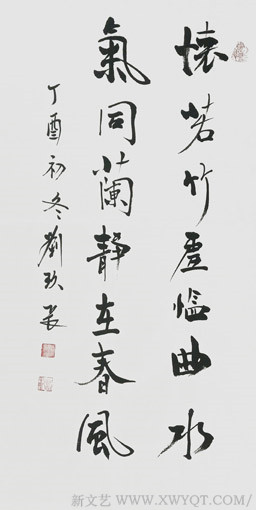 懷若竹虛臨曲水
氣同蘭靜在春風
丁酉初冬劉玖義
新文艺 WWW.XWYQT.COM